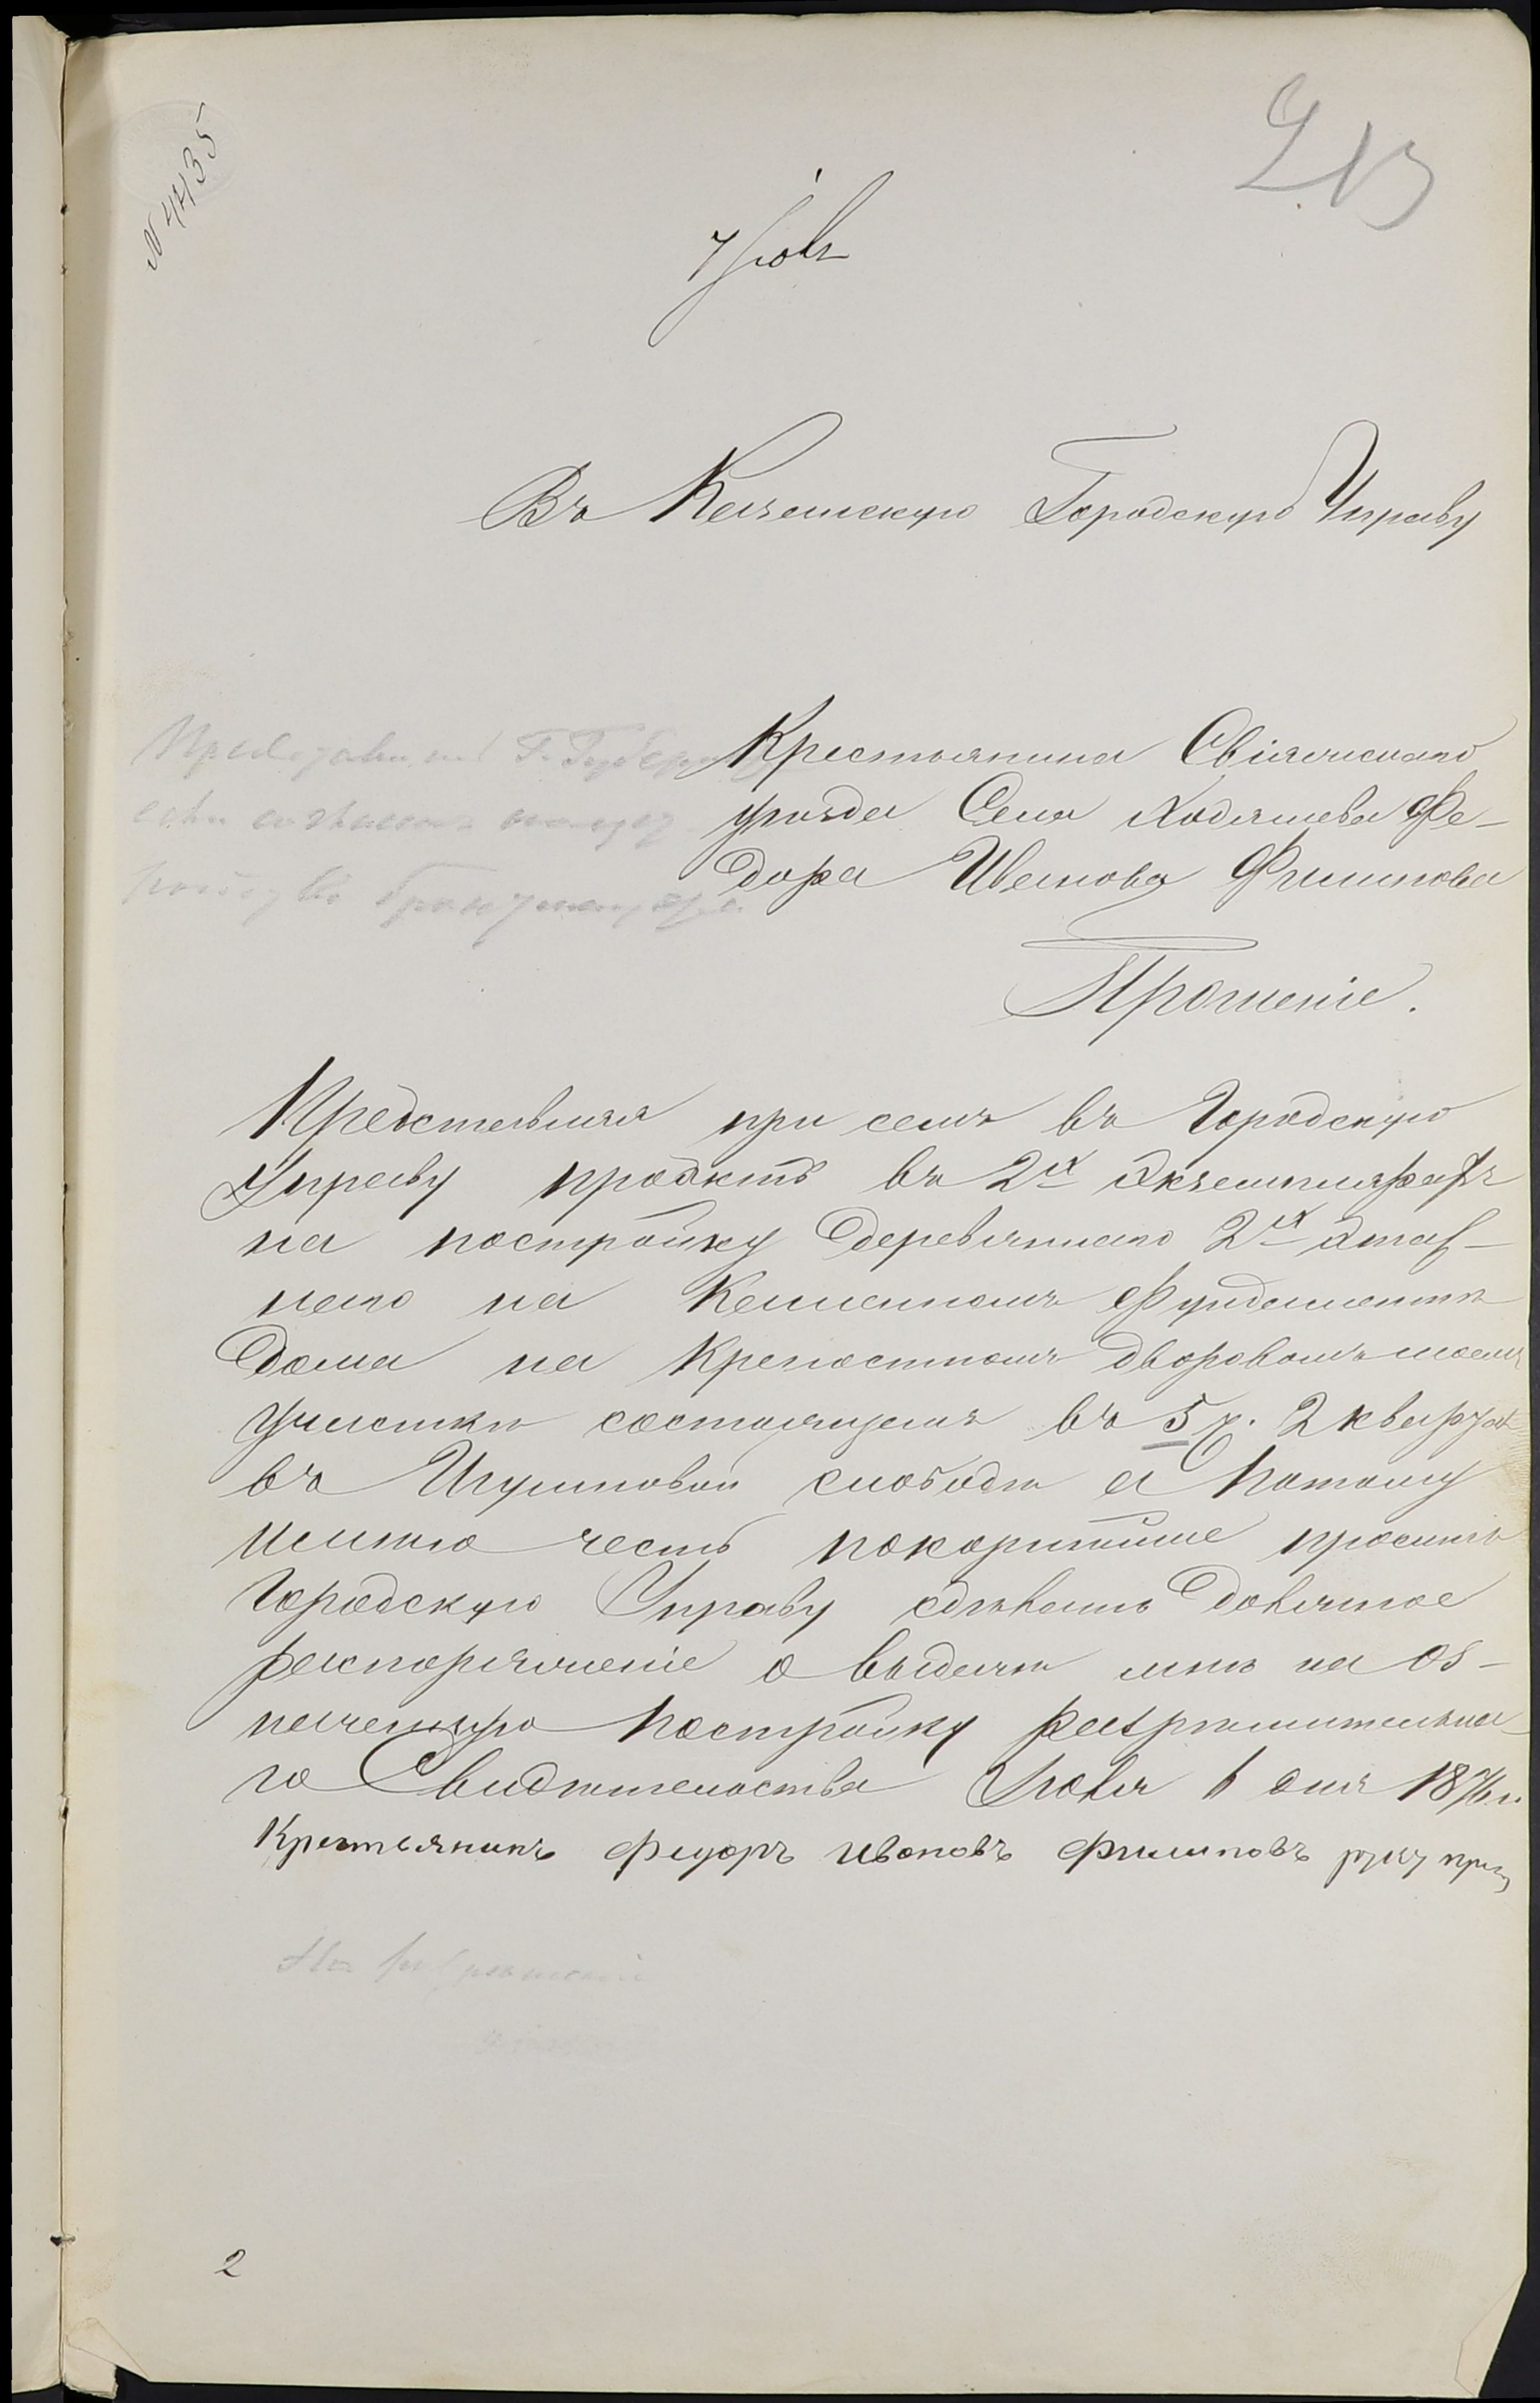 № 4435
213
7 Іюля
Въ Казанскую Городскую Управу
Крестьянина Свіяжскаго
уѣзда Села Ходяшева Фе-
дора Иванова Филипова
Прошеніе.
Представляя при семъ въ Городскую
Управу проэктъ въ 2х экземплярахъ
на постройку деревяннаго 2х этаж-
наго на Каменномъ Фундаментѣ
дома на Крепостномъ дворовомъ моемъ
участкѣ состоящемъ въ 5 ч. 2 кварталѣ
въ Игумновой слободѣ а потому
имѣю честь покорнѣйше просить
Городскую Управу сдѣлать должное
распоряженіе о выдачѣ мнѣ на оз-
наченную постройку разрѣшительна-
го Свидѣтельства Іюля 6 дня 1876 г.
Крестьянинъ Федоръ Ивановъ Филиповъ руку
2